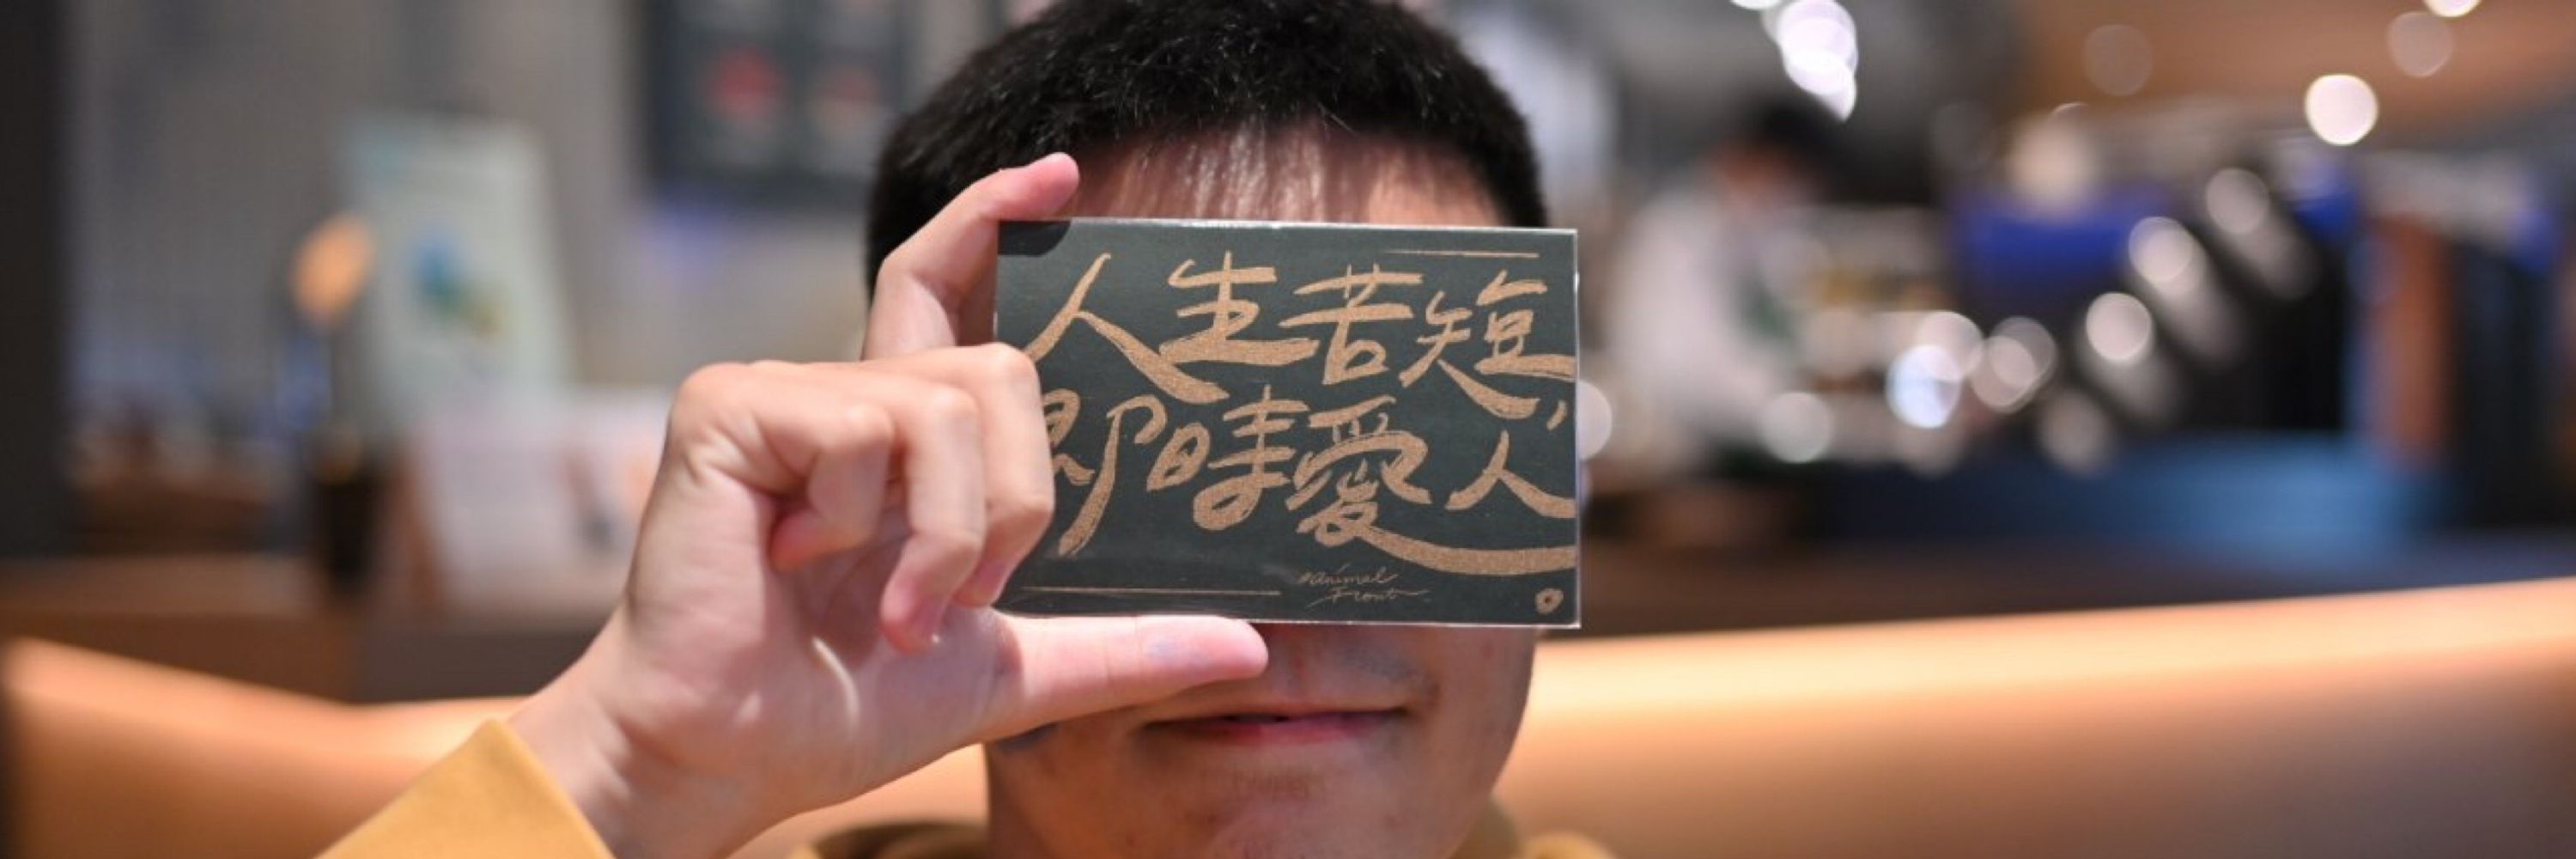 人生苦短,
即時愛人
Animal
Front